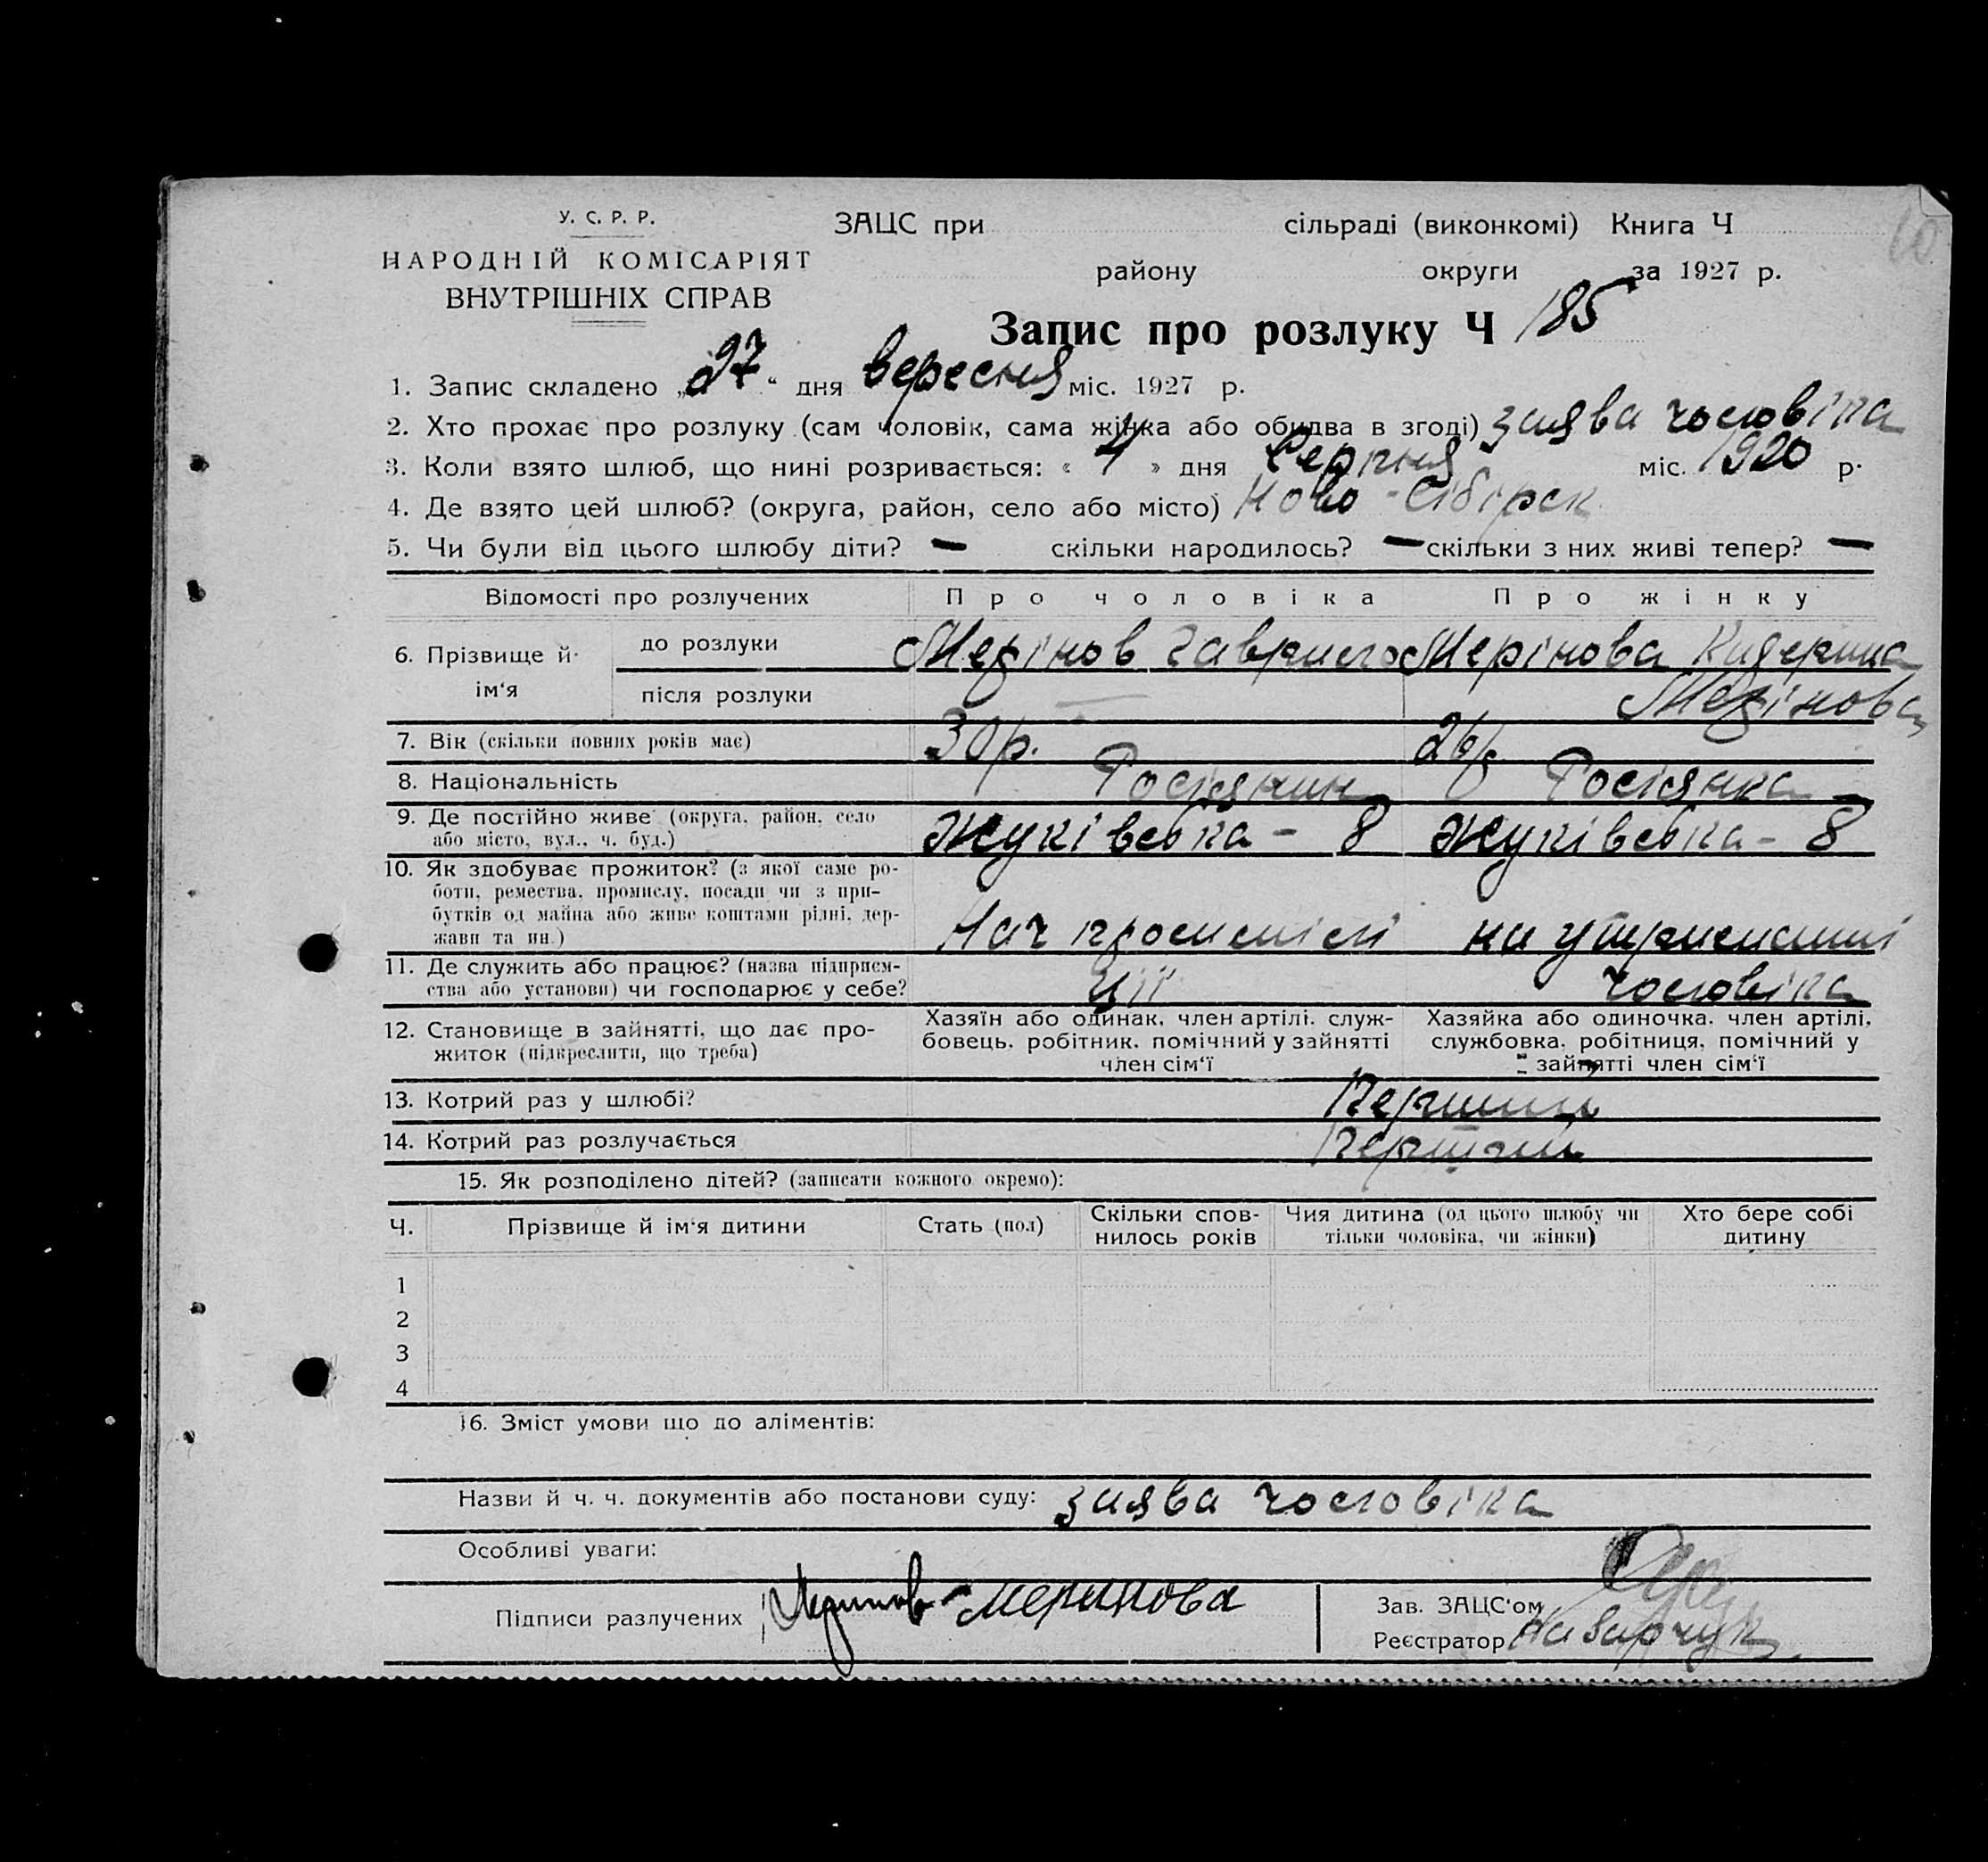 У. С. Р. Р.
НАРОДНІЙ КОМІСАРІЯТ
ВНУТРІШНІХ СПРАВ
ЗАЦС при сільраді (виконкомі) Книга Ч
60
району округи за 1927 р.
Запис про розлуку Ч 185
1. Запис складено „27“ дня вересня міс. 1927 р.
2. Хто прохає про розлуку (сам чоловік, сама жінка або обидва в згоді) заява чоловіка
3. Коли взято шлюб, що нині розривається: « 4 » дня Серпня міс. 1920 р.
4. Де взято цей шлюб? (округа, район, село або місто) Ново-Сібірск
5. Чи були від цього шлюбу діти? — скільки народилось? — скільки з них живі тепер? —
Відомості про розлучених Про чоловіка Про жінку
6. Прізвище й ім‘я до розлуки Мерінов Гаврило Мерінова
після розлуки — Мерінова
7. Вік (скільки повних років має) 30 р. 26 р.
8. Національність Росіянин Росіянка
9. Де постійно живе (округа, район, село
або місто, вул., ч. буд.) Жуківська - 8 Жуківська - 8
10. Як здобуває прожиток? (з якої саме ро-
боти, ремества, промислу, посади чи з при-
бутків од майна або живе коштами рідні, дер-
жави та ин.) Нач на утриманні
11. Де служить або працює? (назва підприєм-
ства або установи) чи господарює у себе? ції чоловіка
12. Становище в зайнятті, що дає про-
житок (підкреслити, що треба)
Хазяїн або одинак, член артілі, служ-
бовець, робітник, помічний у зайнятті
член сім‘ї
Хазяйка або одиночка, член артілі,
службовка, робітниця, помічний у
зайнятті член сім‘ї
13. Котрий раз у шлюбі? Перший
14. Котрий раз розлучається Перший
15. Як розподілено дітей? (записати кожного окремо):
Ч. Прізвище й ім‘я дитини Стать (пол) Скільки спов-
нилось років Чия дитина (од цього шлюбу чи
тільки чоловіка, чи жінки) Хто бере собі
дитину
1
2
3
4
16. Зміст умови що до аліментів:
Назви й ч. ч. документів або постанови суду: заява чоловіка
Особливі уваги:
Підписи разлучених Меринов - Меринова
Зав. ЗАЦС‘ом
Реєстратор Назарчук